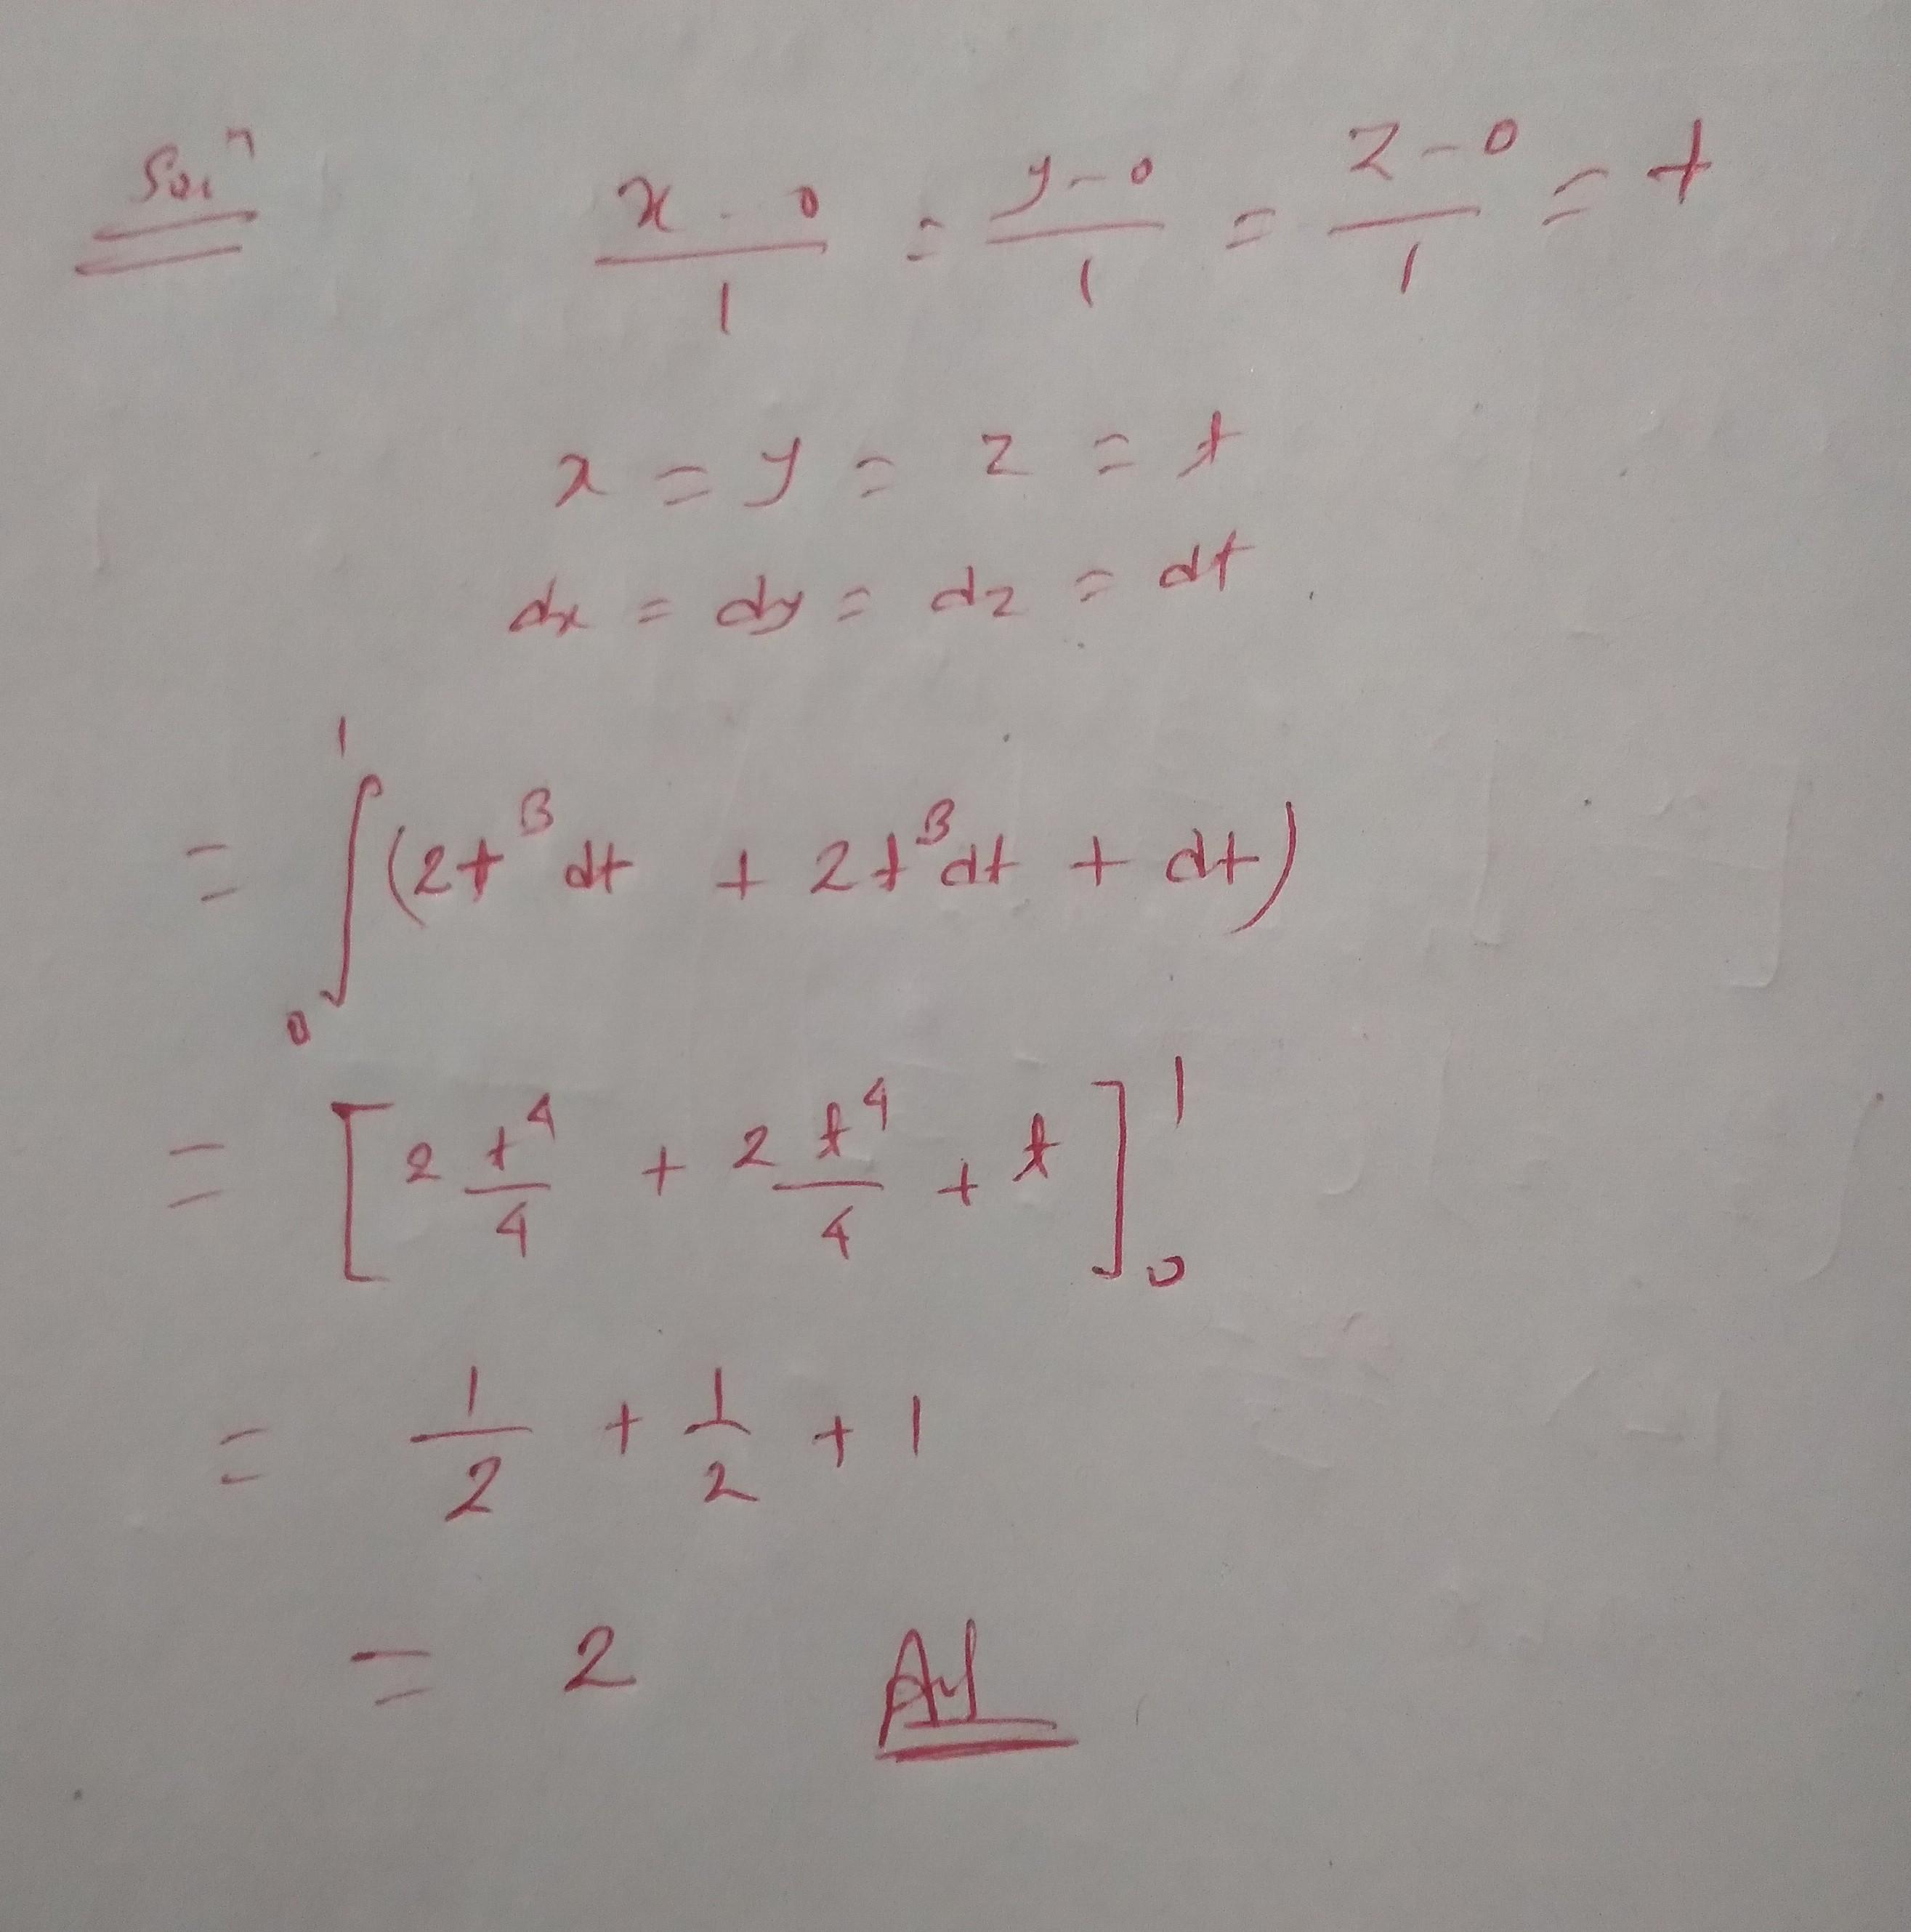 Solⁿ x-0/1 = y-0/1 = z-0/1 = t
x = y = z = t
dx = dy = dz = dt
= ∫₀¹ (2t³ dt + 2t³ dt + dt)
= [2 t⁴/4 + 2 t⁴/4 + t]₀¹
= 1/2 + 1/2 + 1
= 2 Ans